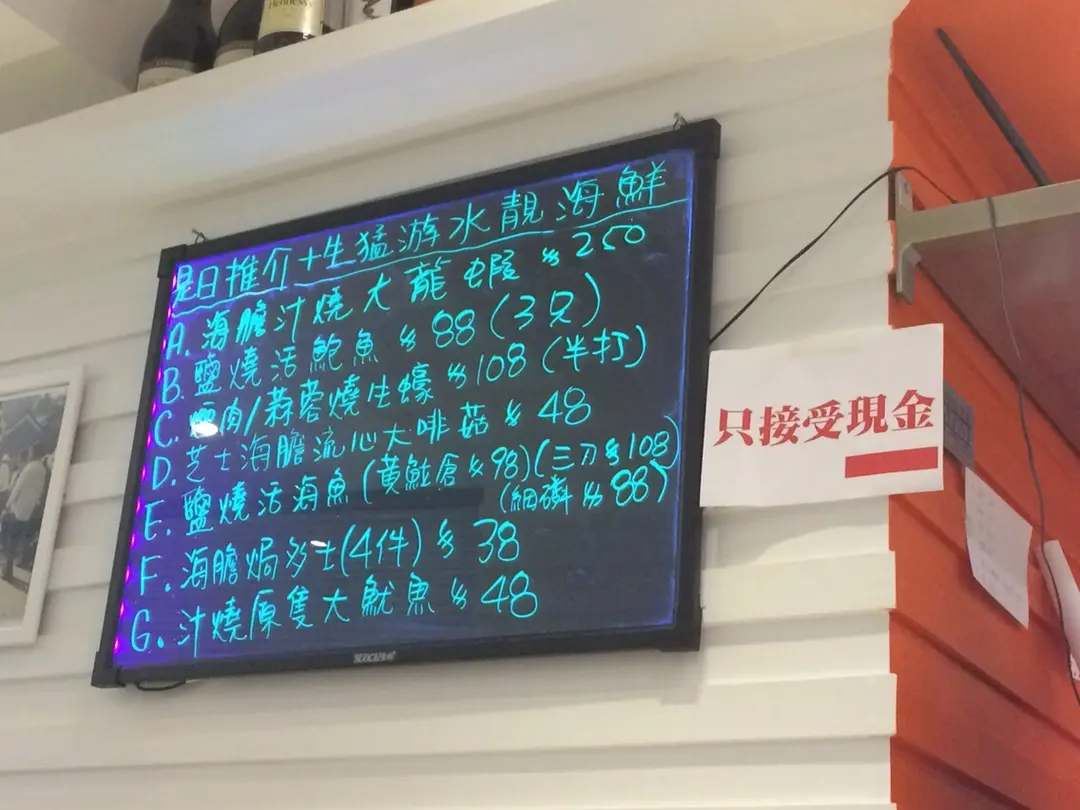 Hennessy
是日推介+生猛游水靚海鮮
A. 海膽汁燒大龍蝦 $250
B. 鹽燒活鮑魚 $88(3只)
C. 肉/蒜蓉燒生蠔 $108(半打)
D. 芝士海膽流心大啡菇 $48
E. 鹽燒活海魚(黃魽倉 $98)(三刀 $108)
(細磷 $88)
F. 海膽焗多士(4件) $38
G. 汁燒原隻大魷魚 $48
只接受現金